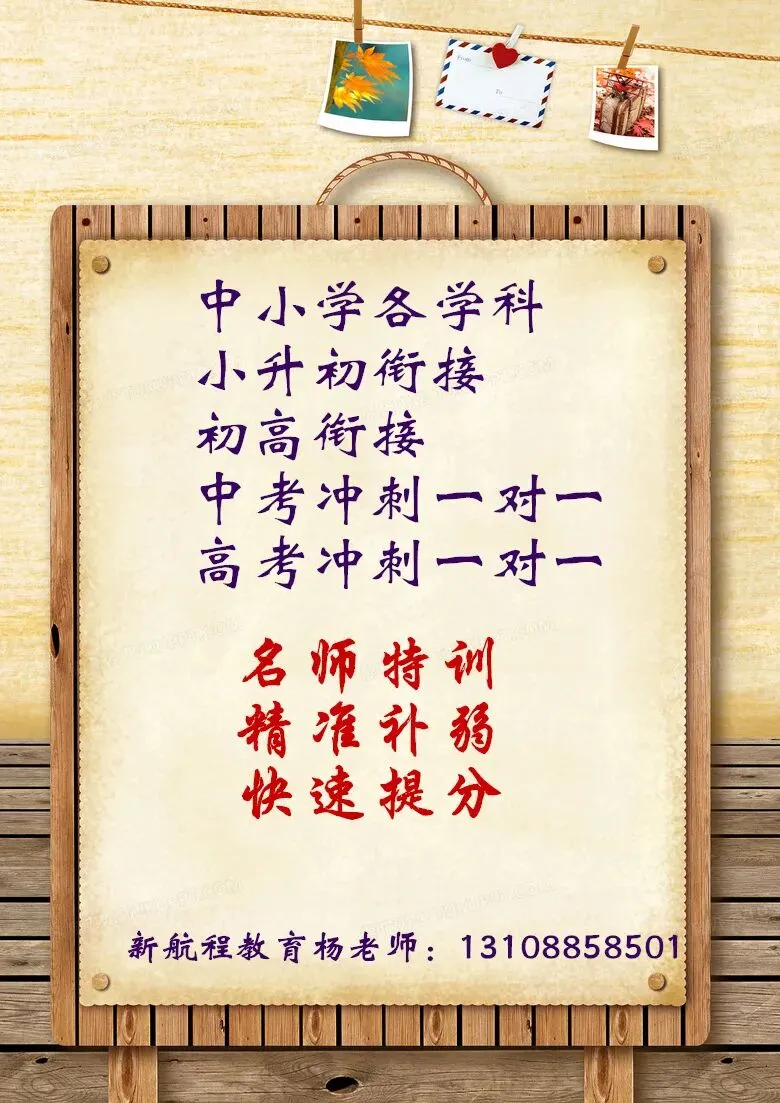 From
To
中小学各学科
小升初衔接
初高衔接
中考冲刺一对一
高考冲刺一对一
名师特训
精准补弱
快速提分
新航程教育杨老师：13108858501